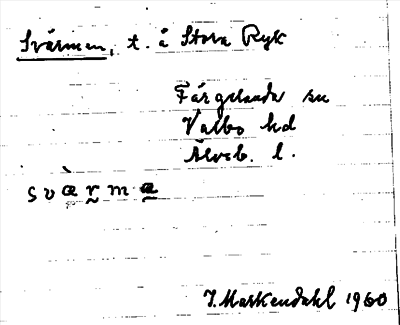 Svärmen, t. å Stora Ryk
Färgelanda sn
Valbo hd
Älvsb. l.
s v æ̀ r̰ m a̰
J. Markendahl 1960